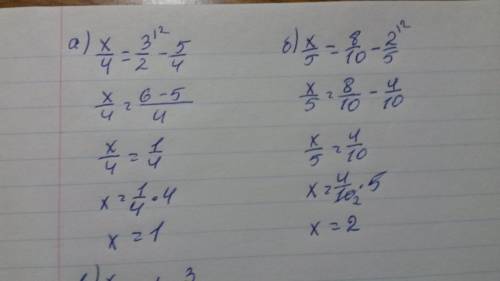 а) x/4 = 3/2^{12} - 5/4
x/4 = (6-5)/4
x/4 = 1/4
x = 1/4 · 4
x = 1
б) x/5 = 8/10 - 2/5^{12}
x/5 = 8/10 - 4/10
x/5 = 4/10
x = 4/10₂ · 5
x = 2